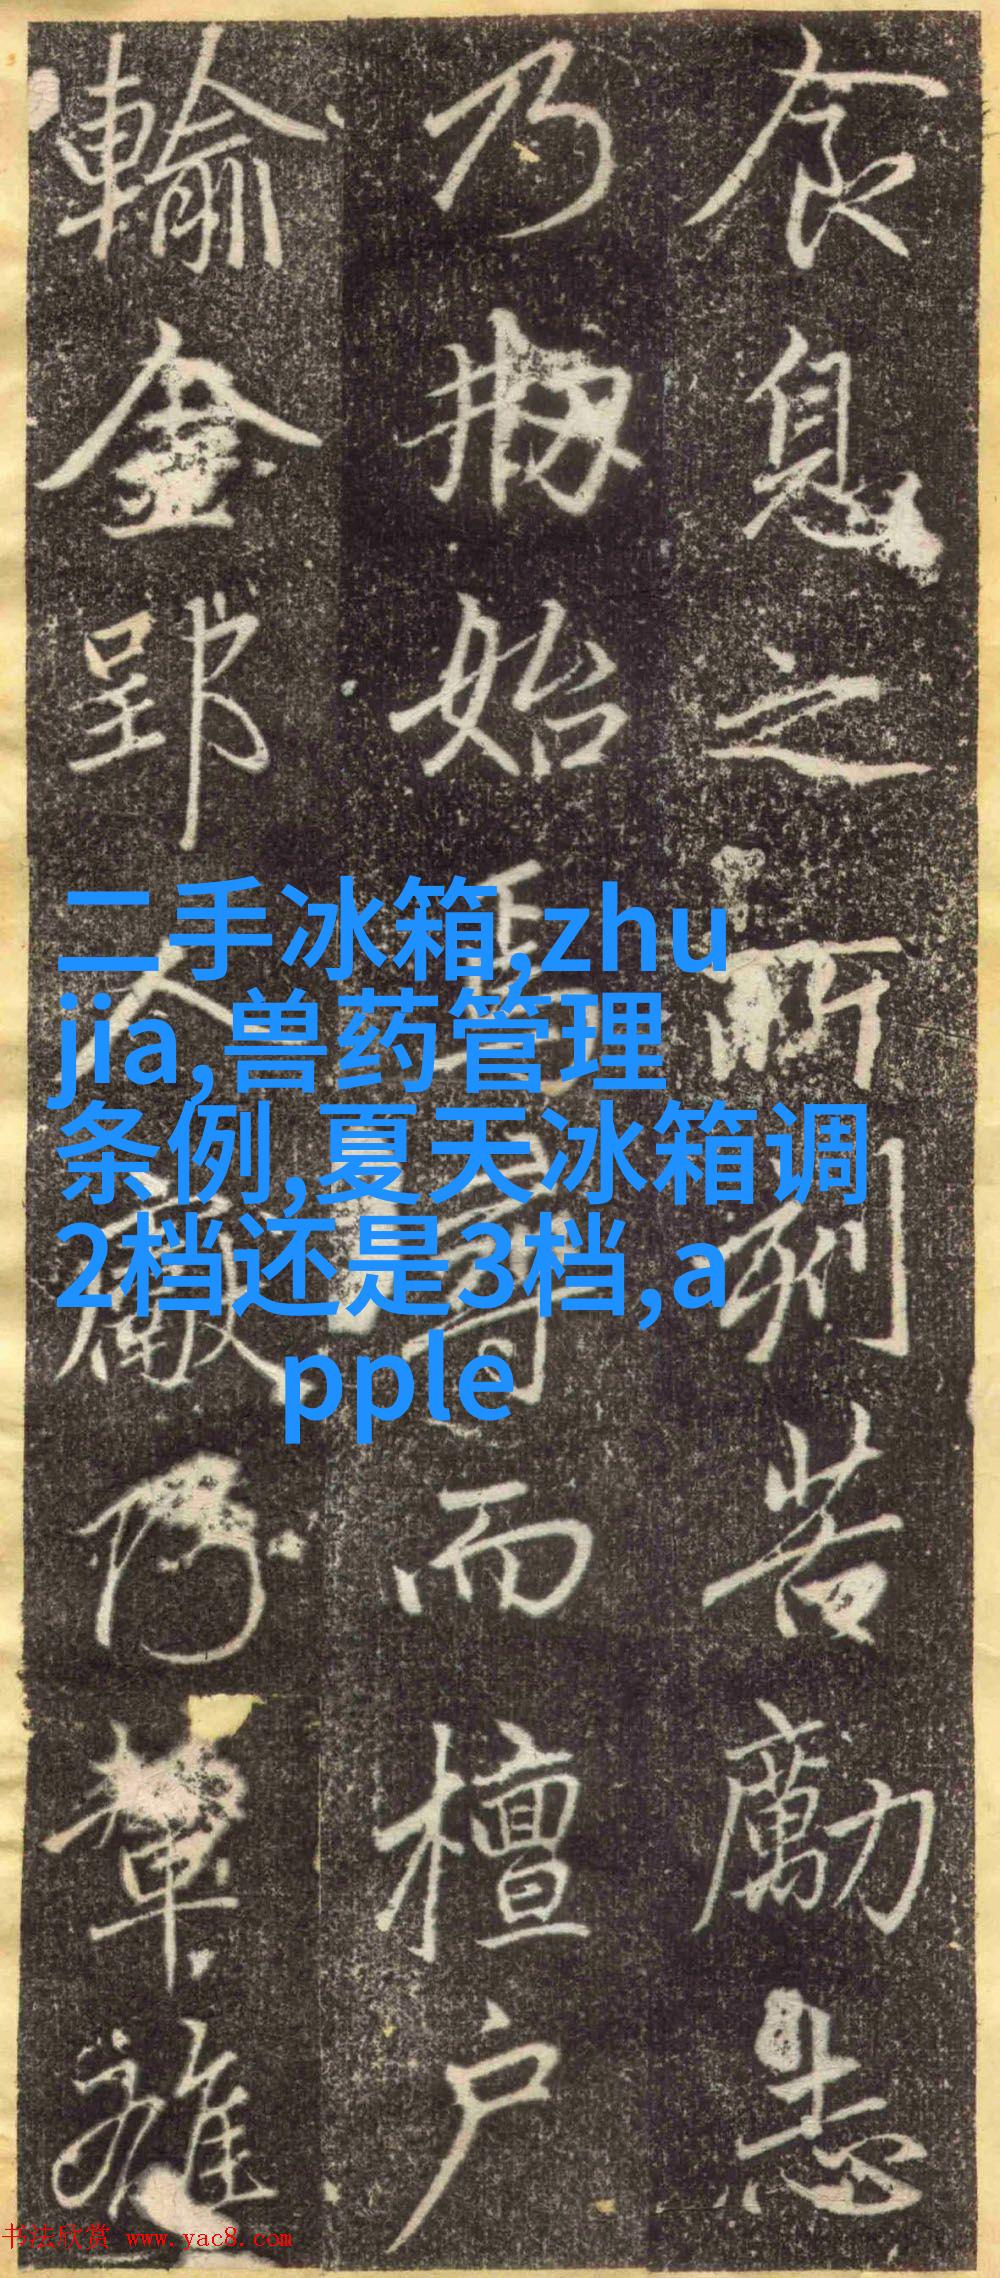 食息之所刻苦勵志
乃始而檀户
輸金郢人
二手冰箱,zhu
jia,兽药管理
条例,夏天冰箱调
2档还是3档,a
pple
书法欣赏 www.yac8.com